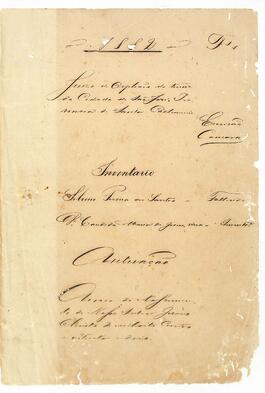 1882
Juizo de Orphãos do termo
da Cidade de São José, Pro-
vincia de Santa Catharina
Escrivão
Camara
Inventario
dos Santos - Fallecido
D. Candida Maria de Jesus, - Invent.e
Autuação
Anno do Nascimen-
to de Nosso Senhor Jesus
Christo de mil oito centos
e oitenta e dous